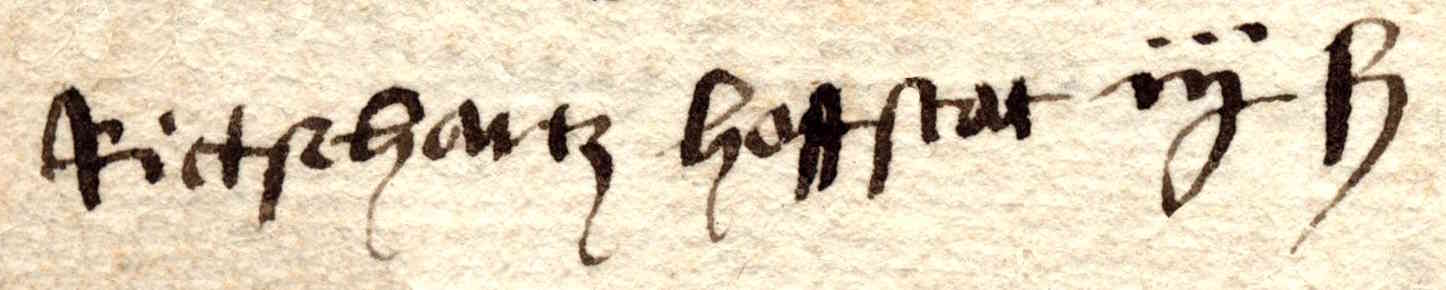 Rietschartz hoffstat iij ß